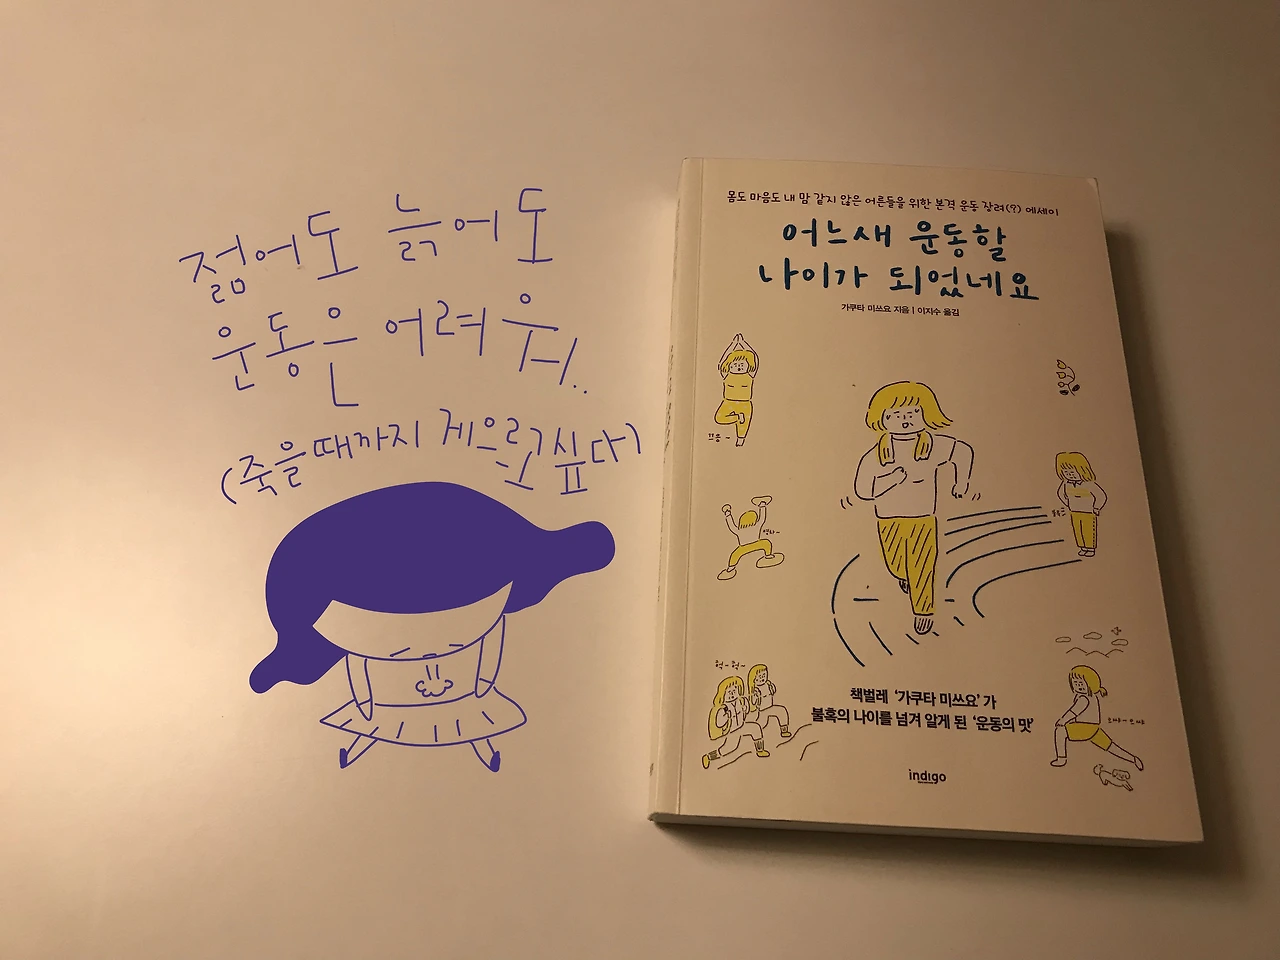 젊어도 늙어도
운동은 어려워..
(죽을때까지 게으르고싶다)
몸도 마음도 내 맘 같지 않은 어른들을 위한 본격 운동 장려(?) 에세이
어느새 운동할
나이가 되었네요
가쿠타 미쓰요 지음 | 이지수 옮김
끄응~
헉~헉~
책벌레 '가쿠타 미쓰요'가
불혹의 나이를 넘겨 알게 된 '운동의 맛'
indigo